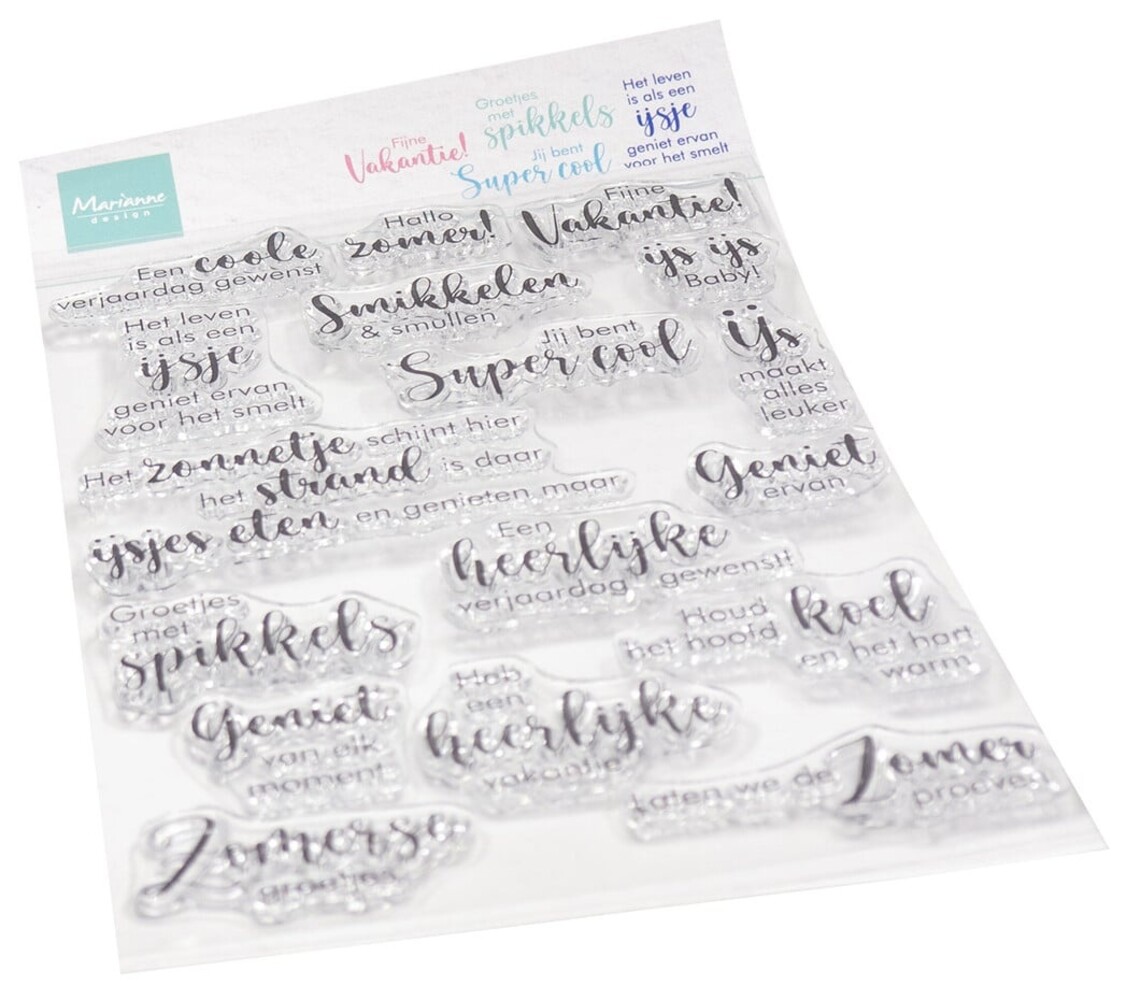 Marianne
design
Fijne
Vakantie!
Groetjes
met
spikkels
Jij bent
Super cool
Het leven
is als een
ijsje
geniet ervan
voor het smelt
Een coole
verjaardag gewenst
Hallo
zomer!
Fijne
Vakantie!
ijs ijs
Baby!
Smikkelen
& smullen
Het leven
is als een
ijsje
geniet ervan
voor het smelt
Jij bent
Super cool
ijs
maakt
alles
leuker
Het zonnetje schijnt hier
het strand is daar
ijsjes eten en genieten maar
Geniet
ervan
Een
heerlijke
verjaardag gewenst!
Groetjes
met
spikkels
Houd koel
het hoofd en het hart
warm
Geniet
van elk
moment
Heb
een
heerlijke
vakantie
Laten we de Zomer
proeven
Zomerse
groetjes